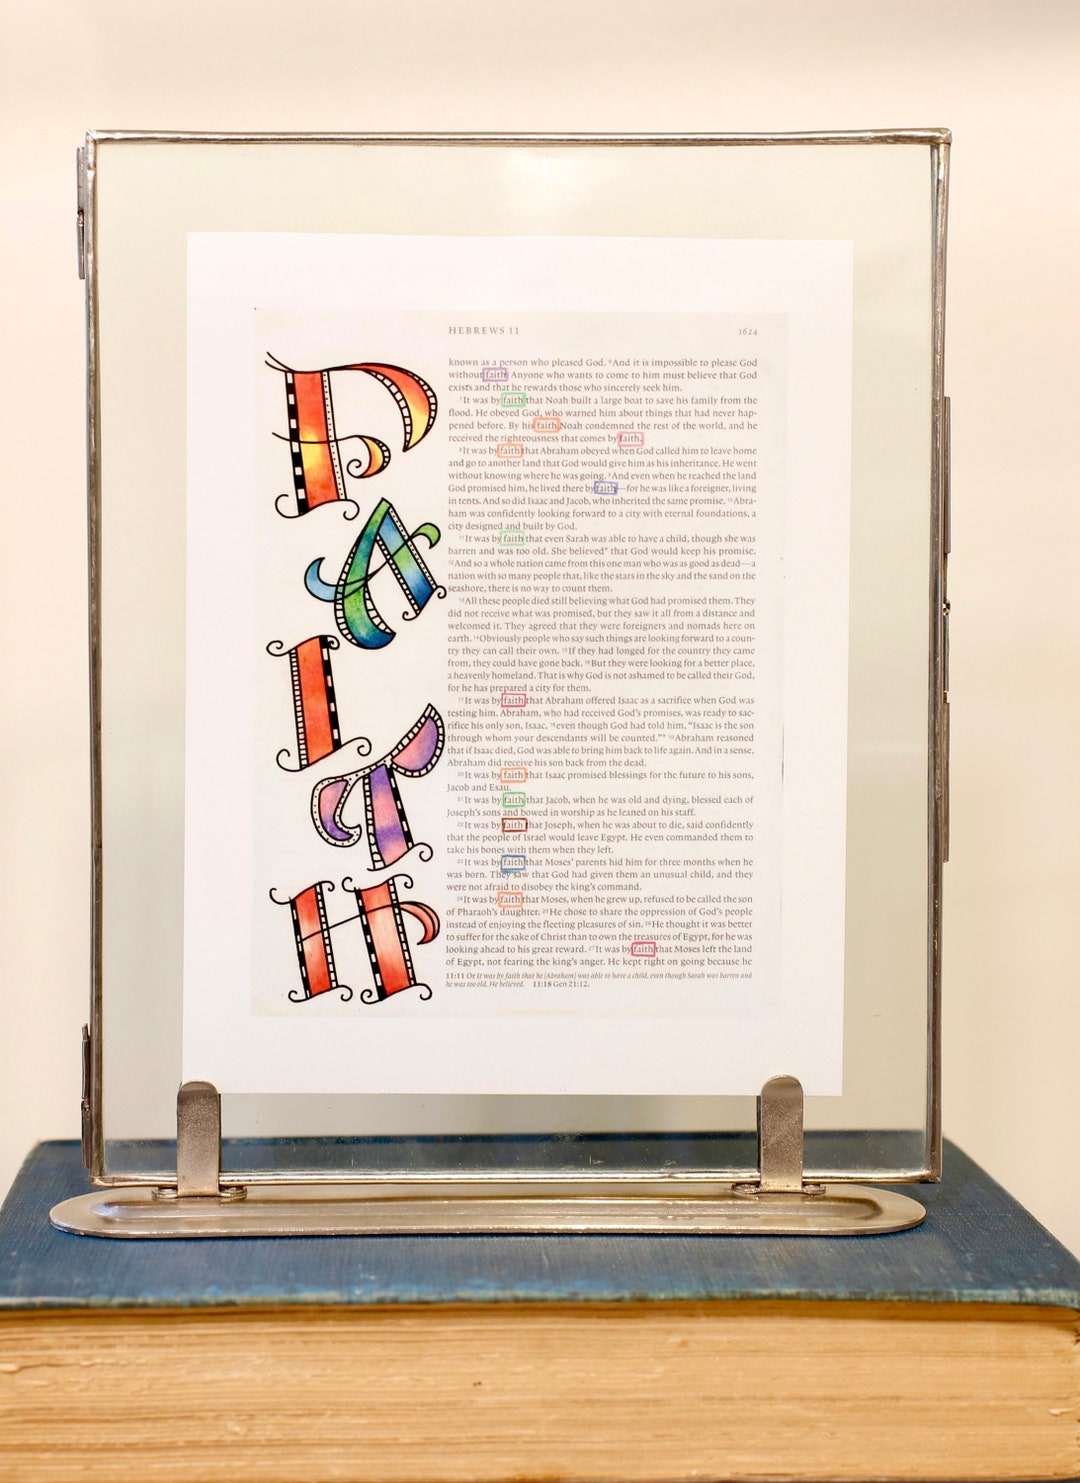 FAITH
HEBREWS 11
1624
known as a person who pleased God. 6And it is impossible to please God
without faith. Anyone who wants to come to him must believe that God
exists and that he rewards those who sincerely seek him.
7It was by faith that Noah built a large boat to save his family from the
flood. He obeyed God, who warned him about things that had never hap-
pened before. By his faith Noah condemned the rest of the world, and he
received the righteousness that comes by faith.
8It was by faith that Abraham obeyed when God called him to leave home
and go to another land that God would give him as his inheritance. He went
without knowing where he was going. 9And even when he reached the land
God promised him, he lived there by faith—for he was like a foreigner, living
in tents. And so did Isaac and Jacob, who inherited the same promise. 10Abra-
ham was confidently looking forward to a city with eternal foundations, a
city designed and built by God.
11It was by faith that even Sarah was able to have a child, though she was
barren and was too old. She believed* that God would keep his promise.
12And so a whole nation came from this one man who was as good as dead—a
nation with so many people that, like the stars in the sky and the sand on the
seashore, there is no way to count them.
13All these people died still believing what God had promised them. They
did not receive what was promised, but they saw it all from a distance and
welcomed it. They agreed that they were foreigners and nomads here on
earth. 14Obviously people who say such things are looking forward to a coun-
try they can call their own. 15If they had longed for the country they came
from, they could have gone back. 16But they were looking for a better place,
a heavenly homeland. That is why God is not ashamed to be called their God,
for he has prepared a city for them.
17It was by faith that Abraham offered Isaac as a sacrifice when God was
testing him. Abraham, who had received God's promises, was ready to sac-
rifice his only son, Isaac, 18even though God had told him, "Isaac is the son
through whom your descendants will be counted."* 19Abraham reasoned
that if Isaac died, God was able to bring him back to life again. And in a sense,
Abraham did receive his son back from the dead.
20It was by faith that Isaac promised blessings for the future to his sons,
Jacob and Esau.
21It was by faith that Jacob, when he was old and dying, blessed each of
Joseph's sons and bowed in worship as he leaned on his staff.
22It was by faith that Joseph, when he was about to die, said confidently
that the people of Israel would leave Egypt. He even commanded them to
take his bones with them when they left.
23It was by faith that Moses' parents hid him for three months when he
was born. They saw that God had given them an unusual child, and they
were not afraid to disobey the king's command.
24It was by faith that Moses, when he grew up, refused to be called the son
of Pharaoh's daughter. 25He chose to share the oppression of God's people
instead of enjoying the fleeting pleasures of sin. 26He thought it was better
to suffer for the sake of Christ than to own the treasures of Egypt, for he was
looking ahead to his great reward. 27It was by faith that Moses left the land
of Egypt, not fearing the king's anger. He kept right on going because he
11:11 Or It was by faith that he [Abraham] was able to have a child, even though Sarah was barren and
he was too old. He believed. 11:18 Gen 21:12.